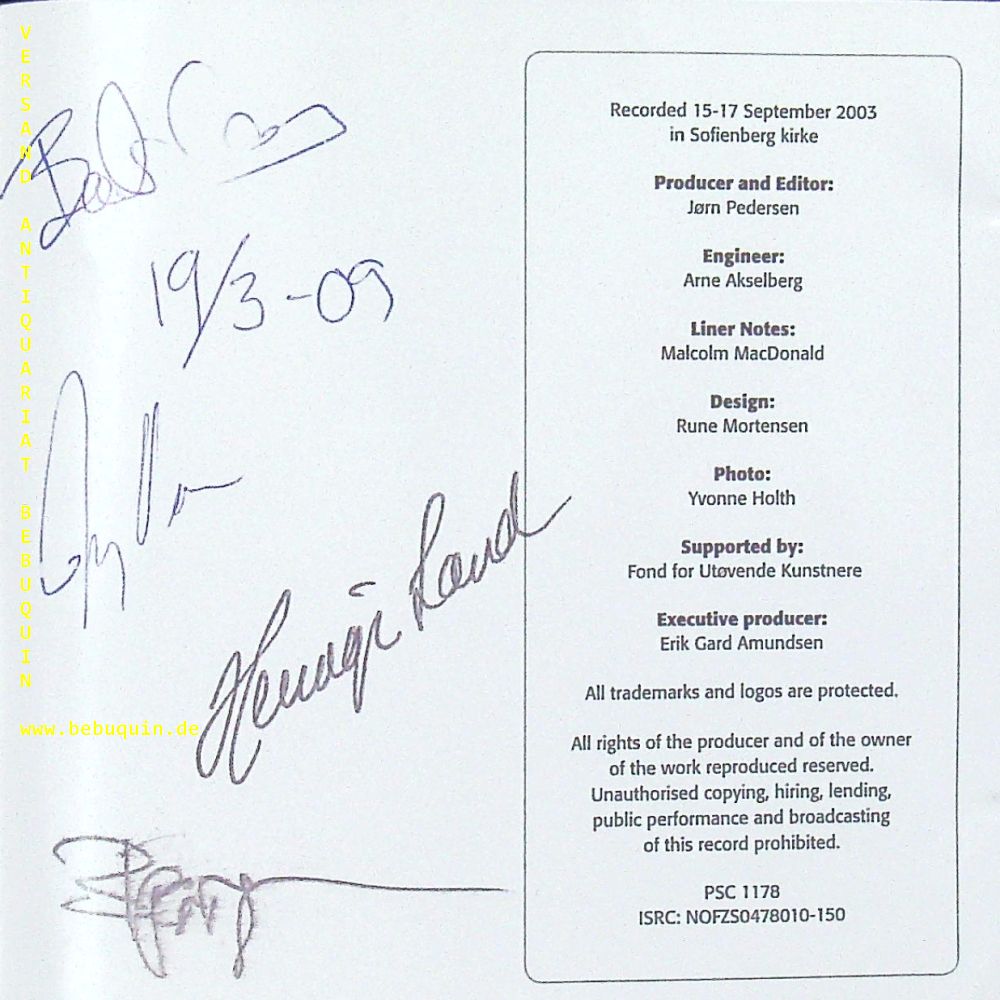 VERSAND ANTIQUARIAT BEBUQUIN
www.bebuquin.de
19/3-09
Recorded 15-17 September 2003
in Sofienberg kirke
Producer and Editor:
Jørn Pedersen
Engineer:
Arne Akselberg
Liner Notes:
Malcolm MacDonald
Design:
Rune Mortensen
Photo:
Yvonne Holth
Supported by:
Fond for Utøvende Kunstnere
Executive producer:
Erik Gard Amundsen
All trademarks and logos are protected.
All rights of the producer and of the owner
of the work reproduced reserved.
Unauthorised copying, hiring, lending,
public performance and broadcasting
of this record prohibited.
PSC 1178
ISRC: NOFZS0478010-150